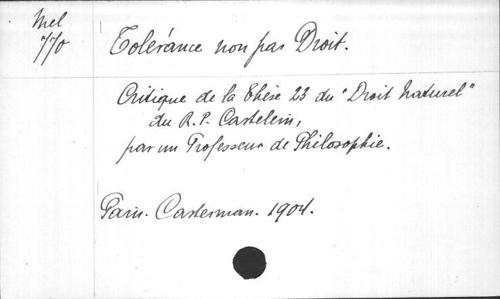 Mel
770
Tolérance non pas Droit.
Critique de la Thèse 23 du "Droit Naturel"
du R. P. Castelein,
par un Professeur de Philosophie.
Paris. Casterman. 1904.